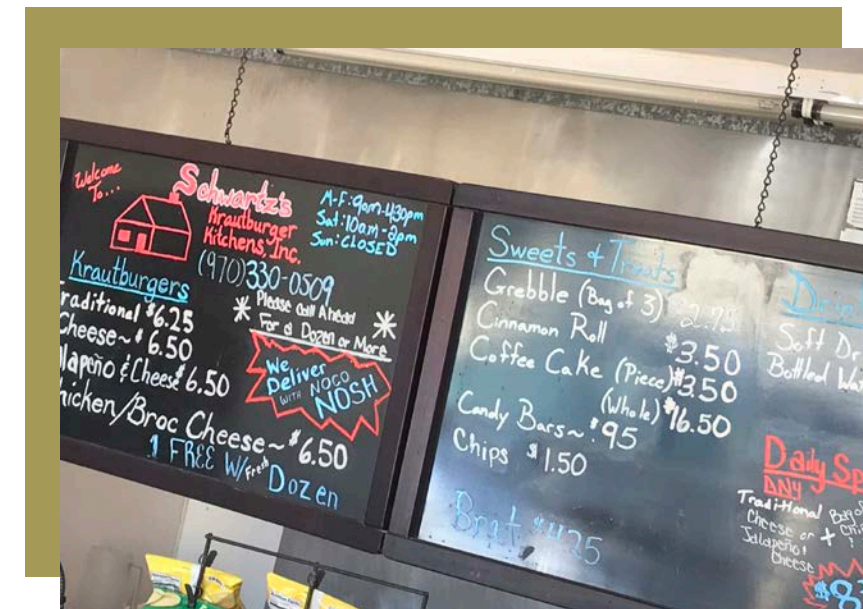 Welcome
To...
Schwartz's
Krautburger
Kitchens, Inc.
(970)330-0509
M-F: 9am-4:30pm
Sat: 10am-2pm
Sun: CLOSED
Krautburgers
Traditional $6.25
Cheese~ $6.50
Jalapeño & Cheese $6.50
Chicken/Broc Cheese~ $6.50
1 FREE W/ Fresh Dozen
* Please Call Ahead *
For a Dozen or More
We
Deliver
WITH NOCO
NOSH
Sweets & Treats
Grebble (Bag of 3) $2.75
Cinnamon Roll $3.50
Coffee Cake (Piece) $3.50
(Whole) $16.50
Candy Bars~ $.95
Chips $1.50
Brat $4.25
Soft
Daily
ANY
Traditional
Cheese or +
Jalapeño
Cheese